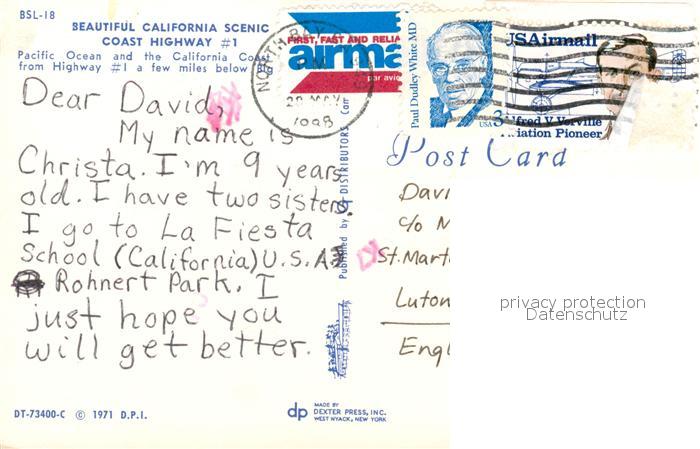 BSL-18
BEAUTIFUL CALIFORNIA SCENIC
COAST HIGHWAY #1
Pacific Ocean and the California Coast
from Highway #1 a few miles below Big
Dear David,
My name is
Christa. I'm 9 years
old. I have two sisters.
I go to La Fiesta
School (California) U.S.A.
Rohnert Park. I
just hope you
will get better.
DT-73400-C © 1971 D.P.I.
Published by
DISTRIBUTORS
dp MADE BY
DEXTER PRESS, INC.
WEST NYACK, NEW YORK
FIRST, FAST AND RELIA
airma
par avio
NORTH BAY
1998
Paul Dudley White MD
USA 3
USAirmail
Alfred V. Verville
Aviation Pioneer
Post Card
Davi
c/o
St. Mart
Luton
Engl
privacy protection
Datenschutz